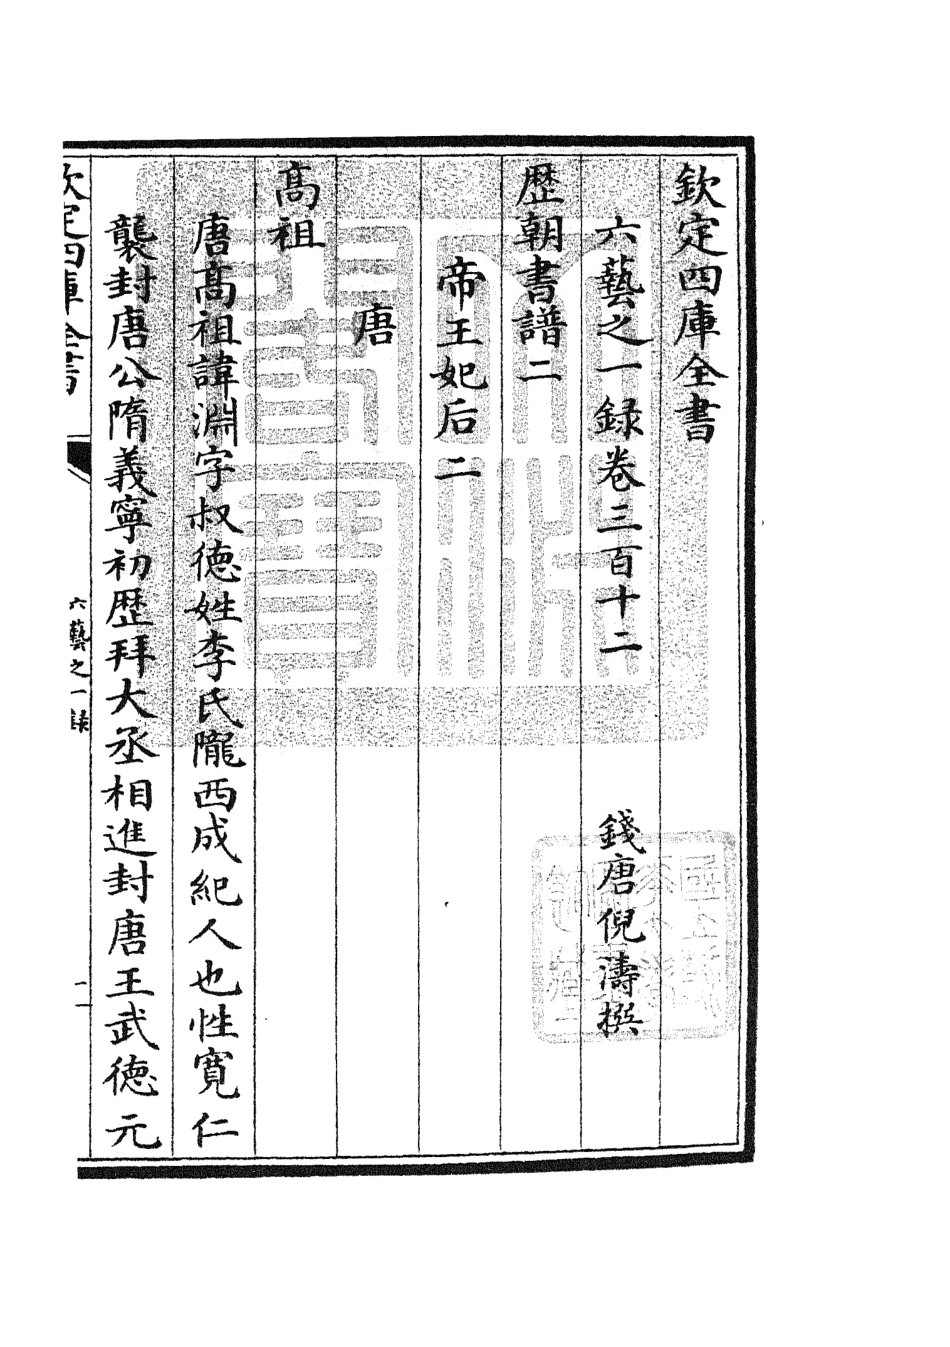 欽定四庫全書
六藝之一録卷三百十二
錢唐倪濤撰
歴朝書譜二
帝王妃后二
唐
髙祖
唐髙祖諱淵字叔德姓李氏隴西成紀人也性寛仁
襲封唐公隋義寧初歴拜大丞相進封唐王武德元
欽定四庫全書
六藝之一録